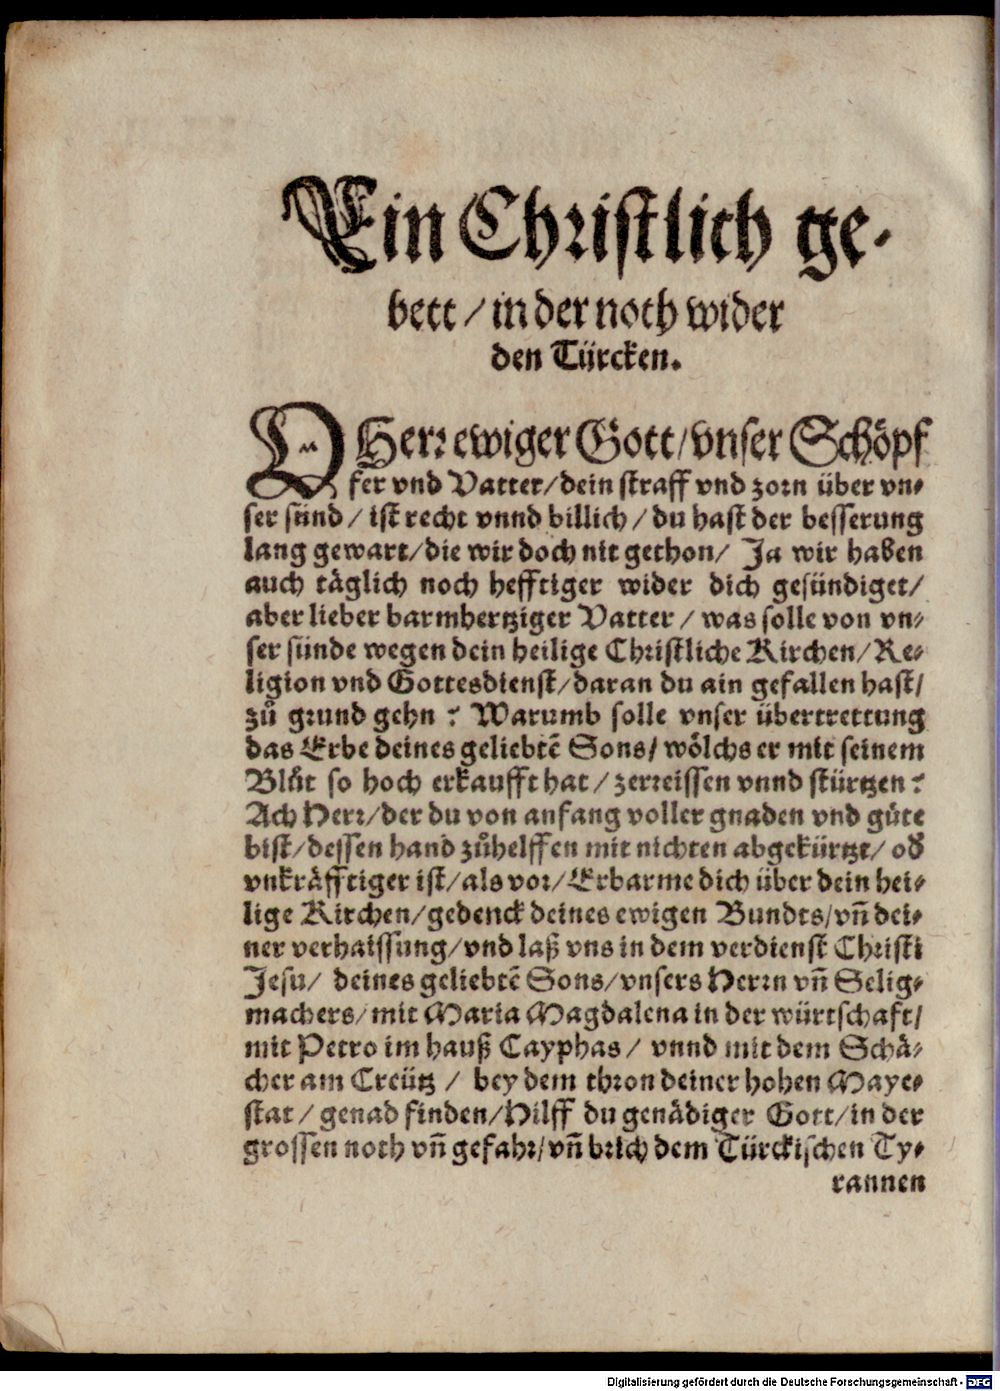 Ein Christlich ge-
bett / in der noth wider
den Türcken.
O Herr ewiger Gott / vnser Schöpf
fer vnd Vatter / dein straff vnd zorn über vn-
ser sünd / ist recht vnnd billich / du hast der besserung
lang gewart / die wir doch nit gethon / Ja wir haben
auch täglich noch hefftiger wider dich gesündiget /
aber lieber barmhertziger Vatter / was solle von vn-
ser sünde wegen dein heilige Christliche Kirchen / Re-
ligion vnd Gottesdienst / daran du ain gefallen hast /
zů grund gehn ? Warumb solle vnser übertrettung
das Erbe deines geliebtē Sons / wölchs er mit seinem
Blůt so hoch erkaufft hat / zerreissen vnnd stürtzen ?
Ach Herr / der du von anfang voller gnaden vnd güte
bist / dessen hand zůhelffen mit nichten abgekürtzt / od
vnkräfftiger ist / als vor / Erbarme dich über dein hei-
lige Kirchen / gedenck deines ewigen Bundts / vñ dei-
ner verhaissung / vnd laß vns in dem verdienst Christi
Jesu / deines geliebtē Sons / vnsers Herrn vñ Selig-
machers / mit Maria Magdalena in der würtschaft /
mit Petro im hauß Cayphas / vnnd mit dem Schä-
cher am Creütz / bey dem thron deiner hohen Maye-
stat / genad finden / Hilff du genädiger Gott / in der
grossen noth vñ gefahr / vñ brich dem Türckischen Ty-
rannen
Digitalisierung gefördert durch die Deutsche Forschungsgemeinschaft - DFG